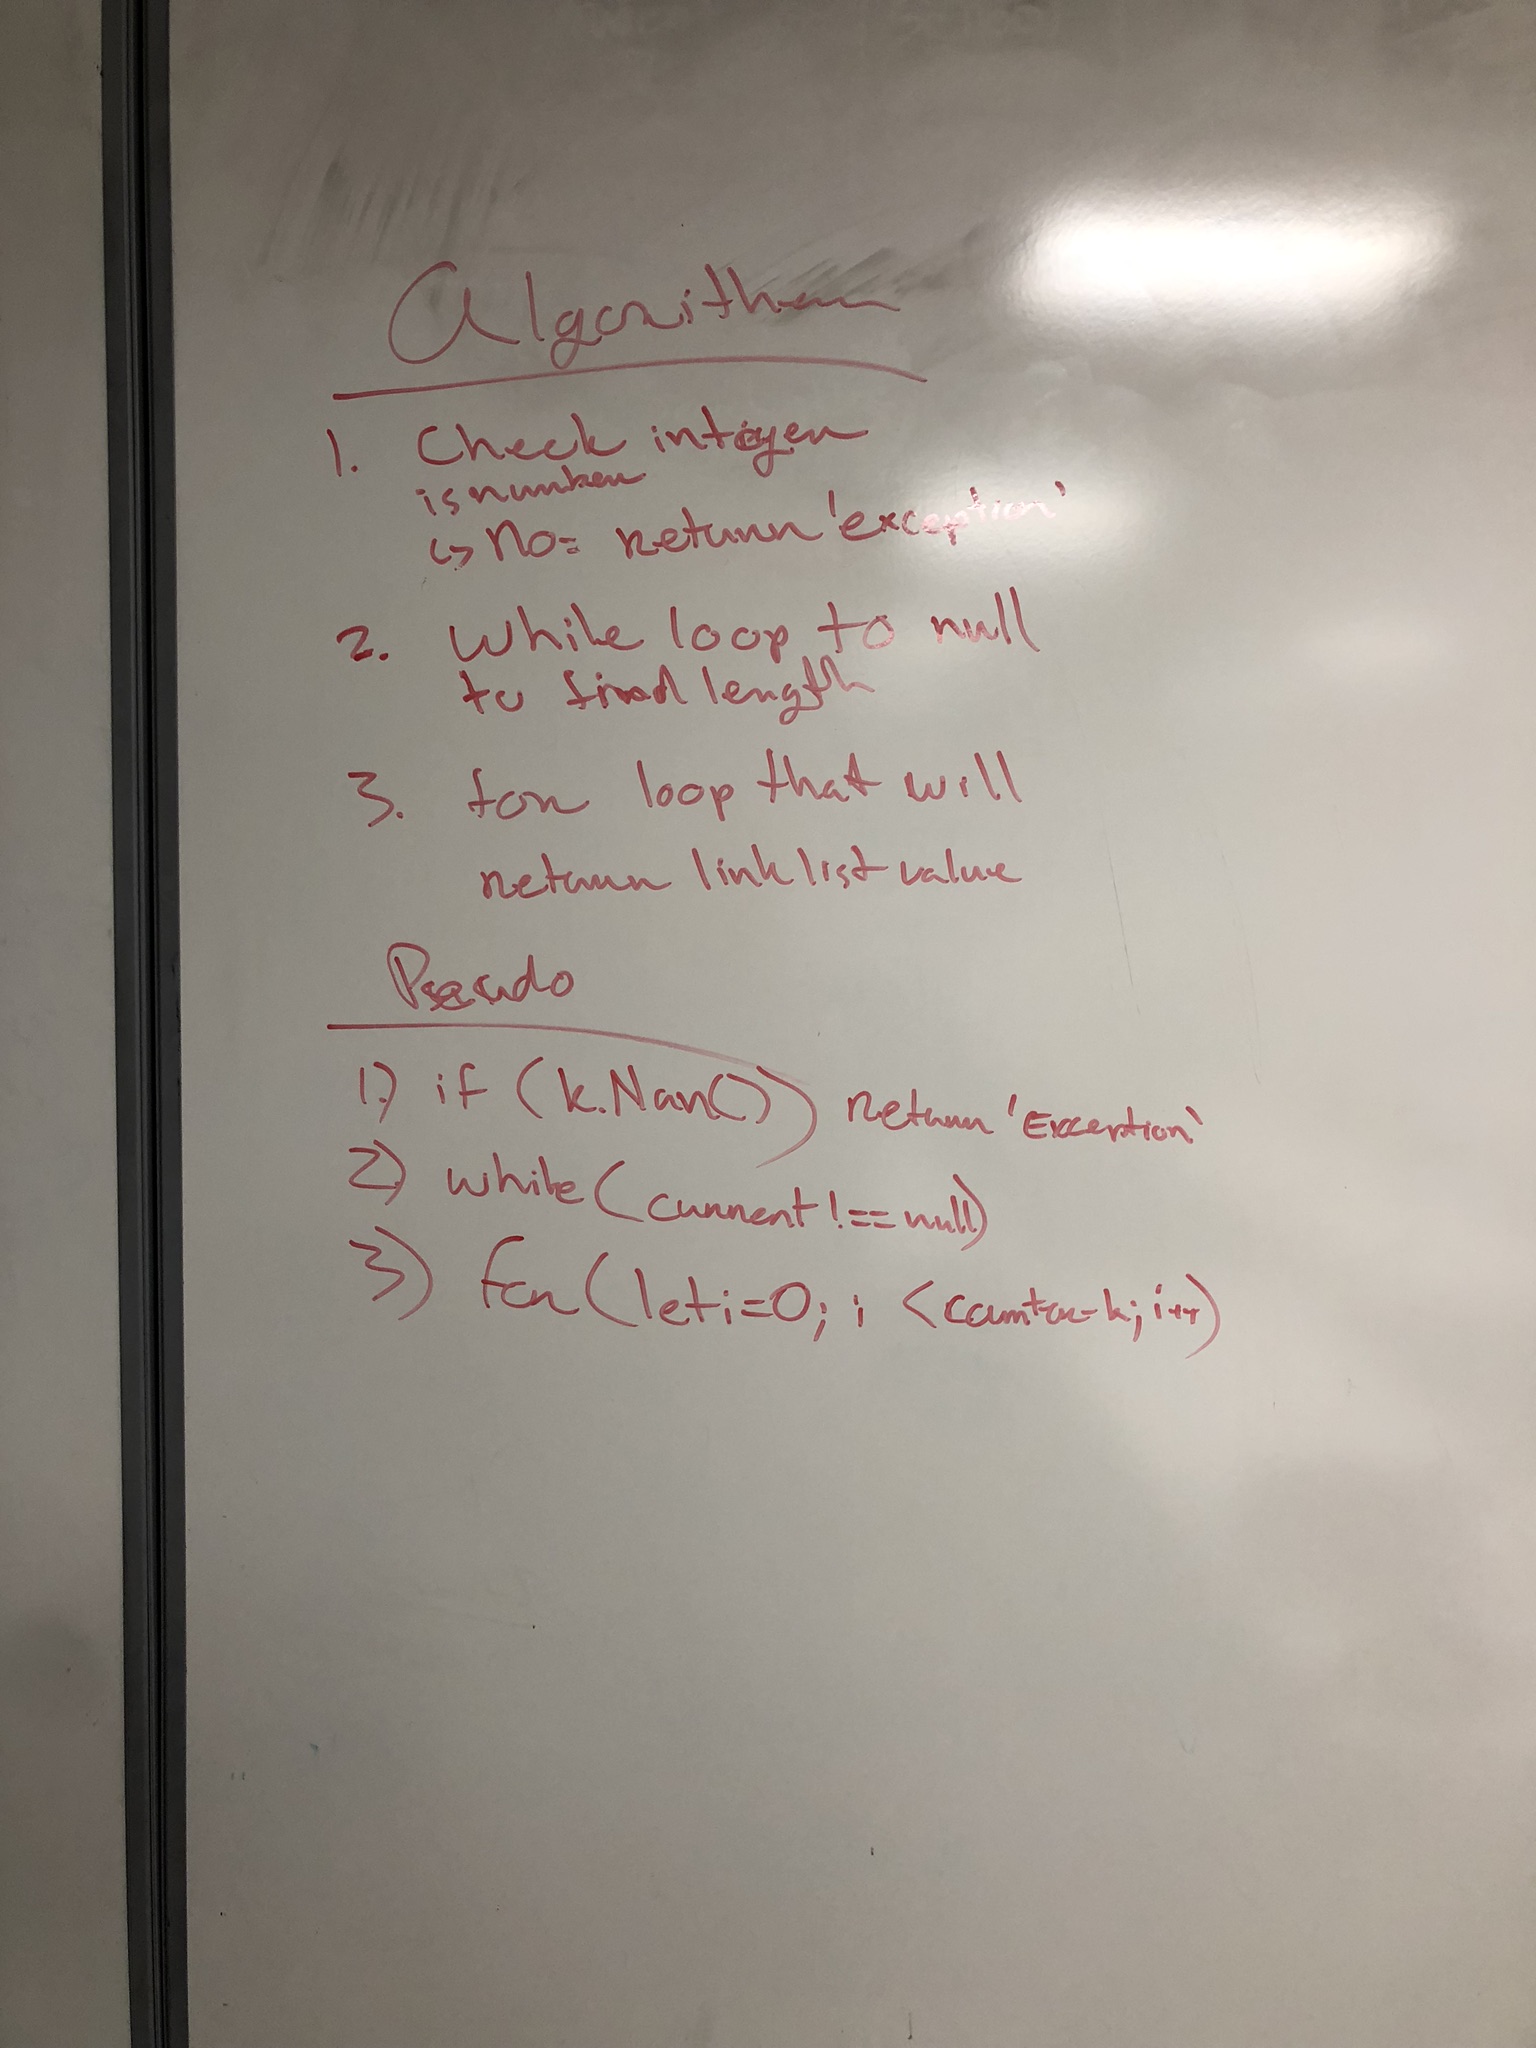 Algorithm
1. Check integer
is number
↳ no = return 'exception'
2. while loop to null
to find length
3. for loop that will
return link list value
Pseudo
1.) if (k.Nan()) return 'Exception'
2) while (current !== null)
3) for (let i=0; i < counter-k; i++)